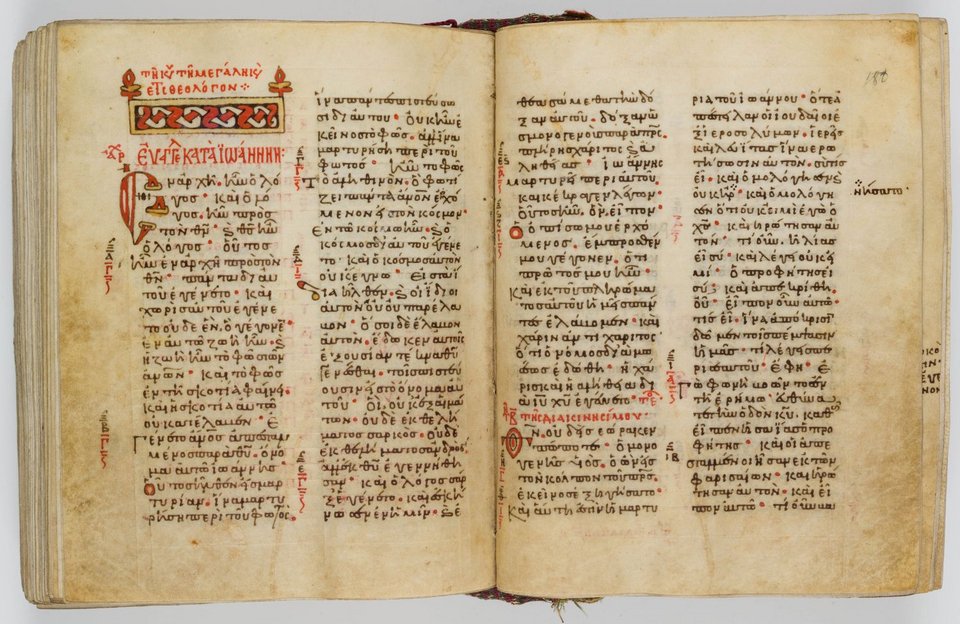 τῆ κυ τῆ μεγάλη
θεολόγον
ΕΥΑΓΓΕ ΚΑΤΑ ΙΩΑΝΝΗΝ
Ἐν ἀρχῆ· ἦν ὁ λό
γος· καὶ ὁ λό
γος· ἦν πρὸς
τὸν θν· καὶ θς ἦν
ὁ λόγος· οὗτος
ἦν ἐν ἀρχῆ πρὸς τὸν
θν· πάντα δι αὐ
τοῦ ἐγένετο· καὶ
χωρὶς αὐτοῦ ἐγένε
το οὐδὲ ἓν, ὃ γέγονεν·
ἐν αὐτῶ ζωὴ ἦν· καὶ
ἡ ζωὴ ἦν τὸ φῶς τῶν
ἀνων· καὶ τὸ φῶς
ἐν τῆ σκοτία φαίνει·
καὶ ἡ σκοτία αὐτὸ
οὐ κατέλαβεν· ἐ
γένετο ἄνος ἀπεσταλ
μένος παρὰ θυ· ὄνο
μα αὐτῶ ἰωάννης·
οὗτος ἦλθεν εἰς μαρ
τυρίαν· ἵνα μαρτυ
ρήση περὶ τοῦ φωτός·
ἵνα πάντες πιστεύσω
σι δι αὐτοῦ· οὐκ ἦν ἐ
κεῖνος τὸ φῶς· ἀλλ ἵνα
μαρτυρήση περὶ τοῦ
φωτός· ἦν τὸ φῶς
τὸ ἀληθινὸν· ὃ φωτί
ζει πάντα ἄνον ἐρχό
μενον εἰς τὸν κόσμον·
ἐν τῶ κόσμω ἦν· καὶ ὁ
κόσμος δι αὐτοῦ ἐγένε
το· καὶ ὁ κόσμος αὐτὸν
οὐκ ἔγνω· εἰς τὰ ἴ
δια ἦλθεν· καὶ οἱ ἴδιοι
αὐτὸν οὐ παρέλα
βον· ὅσοι δὲ ἔλαβον
αὐτὸν· ἔδωκεν αὐτοῖς
ἐξουσίαν τέκνα θυ
γενέσθαι· τοῖς πιστεύ
ουσιν εἰς τὸ ὄνομα αὐ
τοῦ· οἳ οὐκ ἐξ αἱμά
των· οὐδὲ ἐκ θελή
ματος σαρκὸς· οὐδὲ
ἐκ θελήματος ἀνδρὸς·
ἀλλ ἐκ θυ ἐγεννήθη
σαν· καὶ ὁ λόγος σὰρ
ξ ἐγένετο· καὶ ἐσκή
νωσεν ἐν ἡμῖν· καὶ ἐ
θεασάμεθα τὴν δό
ξαν αὐτοῦ· δόξαν ὡς
μονογενοῦς παρὰ πρς·
πλήρης χάριτος καὶ ἀ
ληθείας· ἰωάννης
μαρτυρεῖ περὶ αὐτοῦ
καὶ κέκραγεν λέγων·
οὗτος ἦν, ὃν εἶπον·
ὁ ὀπίσω μου ἐρχό
μενος· ἔμπροσθέν
μου γέγονεν· ὅτι
πρῶτός μου ἦν·
καὶ ἐκ τοῦ πληρώμα
τος αὐτοῦ ἡμεῖς πάν
τες ἐλάβομεν· καὶ
χάριν ἀντὶ χάριτος·
ὅτι ὁ νόμος διὰ μω
σέως ἐδόθη· ἡ χά
ρις καὶ ἡ ἀλήθεια δι
ὰ ιυ χυ ἐγένετο· τε
τῆς διακινησίμου·
θν οὐδεὶς ἑώρακεν
πώποτε· ὁ μονο
γενὴς υἱὸς· ὁ ὢν εἰς
τὸν κόλπον τοῦ πρς·
ἐκεῖνος ἐξηγήσατο·
καὶ αὕτη ἐστὶν ἡ μαρτυ
ρία τοῦ ἰωάννου· ὅτε ἀ
πέστειλαν οἱ ἰουδαῖοι ἐ
ξ ἱεροσολύμων· ἱερεῖς
καὶ λευίτας ἵνα ἐρω
τήσωσιν αὐτὸν· σὺ τίς
εἶ· καὶ ὡμολόγησεν καὶ
οὐκ· καὶ ὡμολόγη
σεν ὅτι οὐκ εἰμὶ ἐγὼ ὁ
χς· καὶ ἠρώτησαν αὐ
τόν· τί οὖν· ἠλίας
εἶ σύ· καὶ λέγει οὐκ εἰ
μί· ὁ προφήτης εἶ
σύ· καὶ ἀπεκρίθη·
οὔ· εἶπον οὖν αὐτῶ·
τίς εἶ· ἵνα ἀπόκρισιν
δῶμεν τοῖς πέμψασιν
ἡμᾶς· τί λέγεις πε
ρὶ σεαυτοῦ· ἔφη· ἐ
γὼ φωνὴ βοῶντος ἐν
τῆ ἐρήμω· εὐθύνα
τε τὴν ὁδὸν κυ· καθὼς
εἶπεν ἠσαΐας ὁ προ
φήτης· καὶ οἱ ἀπε
σταλμένοι ἦσαν ἐκ τῶν
φαρισαίων· καὶ ἠρώ
τησαν αὐτὸν· καὶ εἶ
πον αὐτῶ· τί οὖν βα
ἠρνήσατο